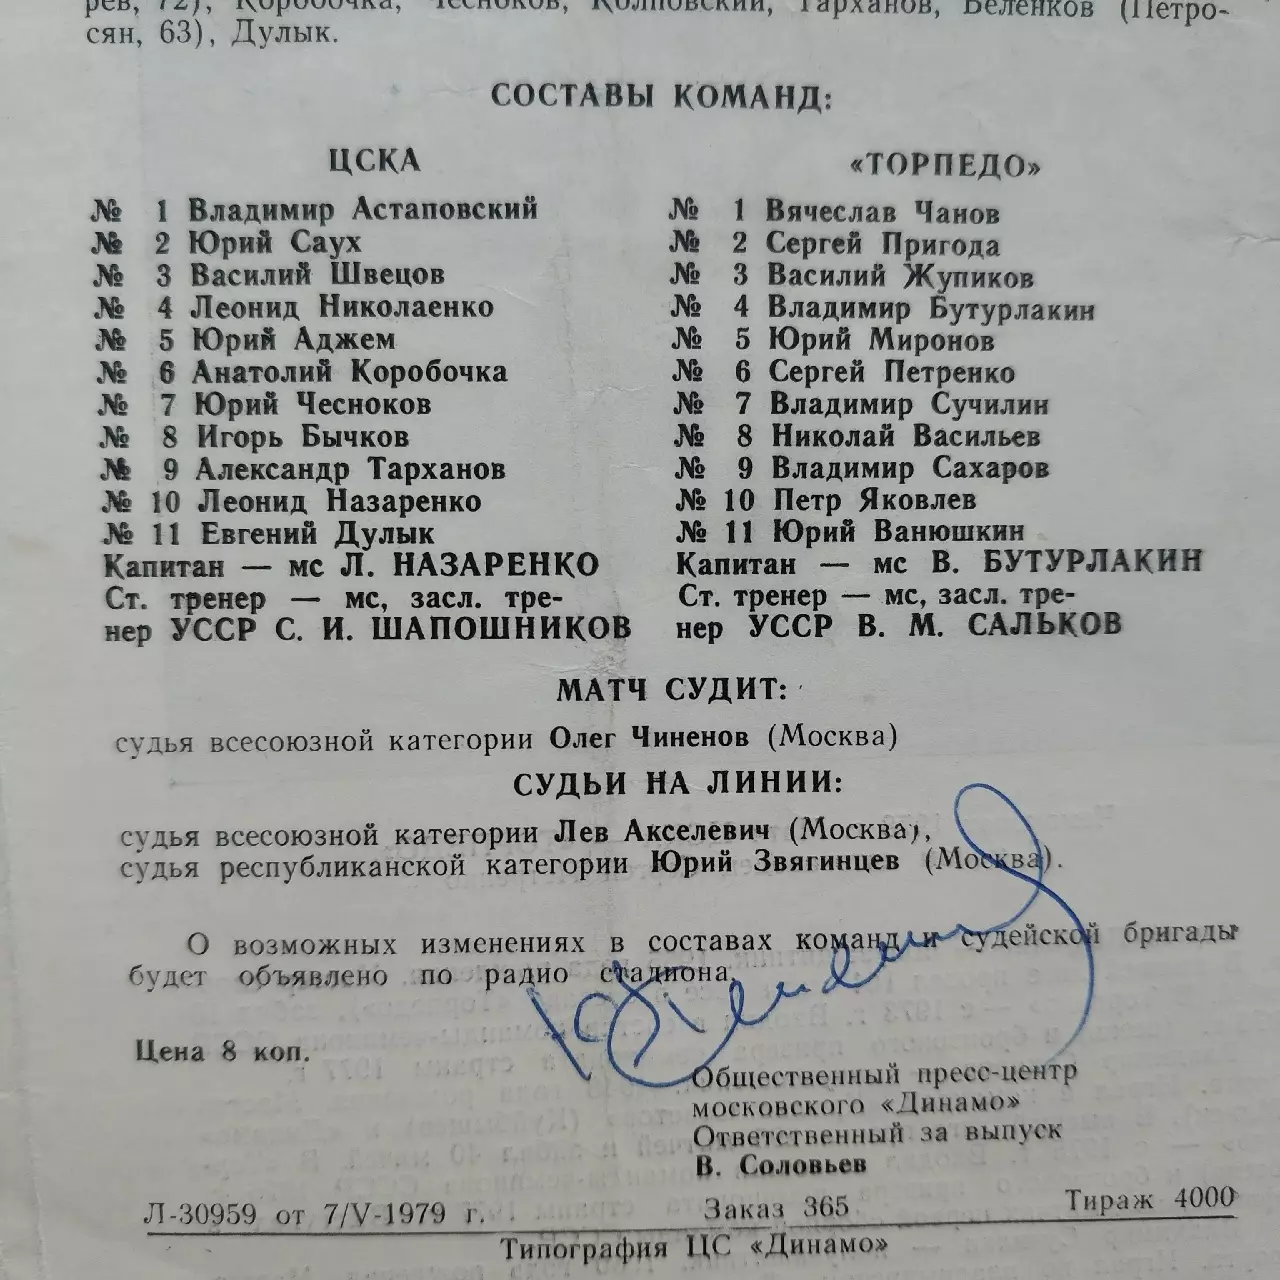 рев, 72), Коробочка, Чесноков, Колповский, Тарханов, Беленков (Петро-
сян, 63), Дулык.
СОСТАВЫ КОМАНД:
ЦСКА
№ 1 Владимир Астаповский
№ 2 Юрий Саух
№ 3 Василий Швецов
№ 4 Леонид Николаенко
№ 5 Юрий Аджем
№ 6 Анатолий Коробочка
№ 7 Юрий Чесноков
№ 8 Игорь Бычков
№ 9 Александр Тарханов
№ 10 Леонид Назаренко
№ 11 Евгений Дулык
Капитан — мс Л. НАЗАРЕНКО
Ст. тренер — мс, засл. тре-
нер УССР С. И. ШАПОШНИКОВ
«ТОРПЕДО»
№ 1 Вячеслав Чанов
№ 2 Сергей Пригода
№ 3 Василий Жупиков
№ 4 Владимир Бутурлакин
№ 5 Юрий Миронов
№ 6 Сергей Петренко
№ 7 Владимир Сучилин
№ 8 Николай Васильев
№ 9 Владимир Сахаров
№ 10 Петр Яковлев
№ 11 Юрий Ванюшкин
Капитан — мс В. БУТУРЛАКИН
Ст. тренер — мс, засл. тре-
нер УССР В. М. САЛЬКОВ
МАТЧ СУДИТ:
судья всесоюзной категории Олег Чиненов (Москва)
СУДЬИ НА ЛИНИИ:
судья всесоюзной категории Лев Акселевич (Москва),
судья республиканской категории Юрий Звягинцев (Москва).
О возможных изменениях в составах команд и судейской бригады
будет объявлено по радио стадиона.
Цена 8 коп.
Общественный пресс-центр
московского «Динамо»
Ответственный за выпуск
В. Соловьев
Л-30959 от 7/V-1979 г. Заказ 365 Тираж 4000
Типография ЦС «Динамо»